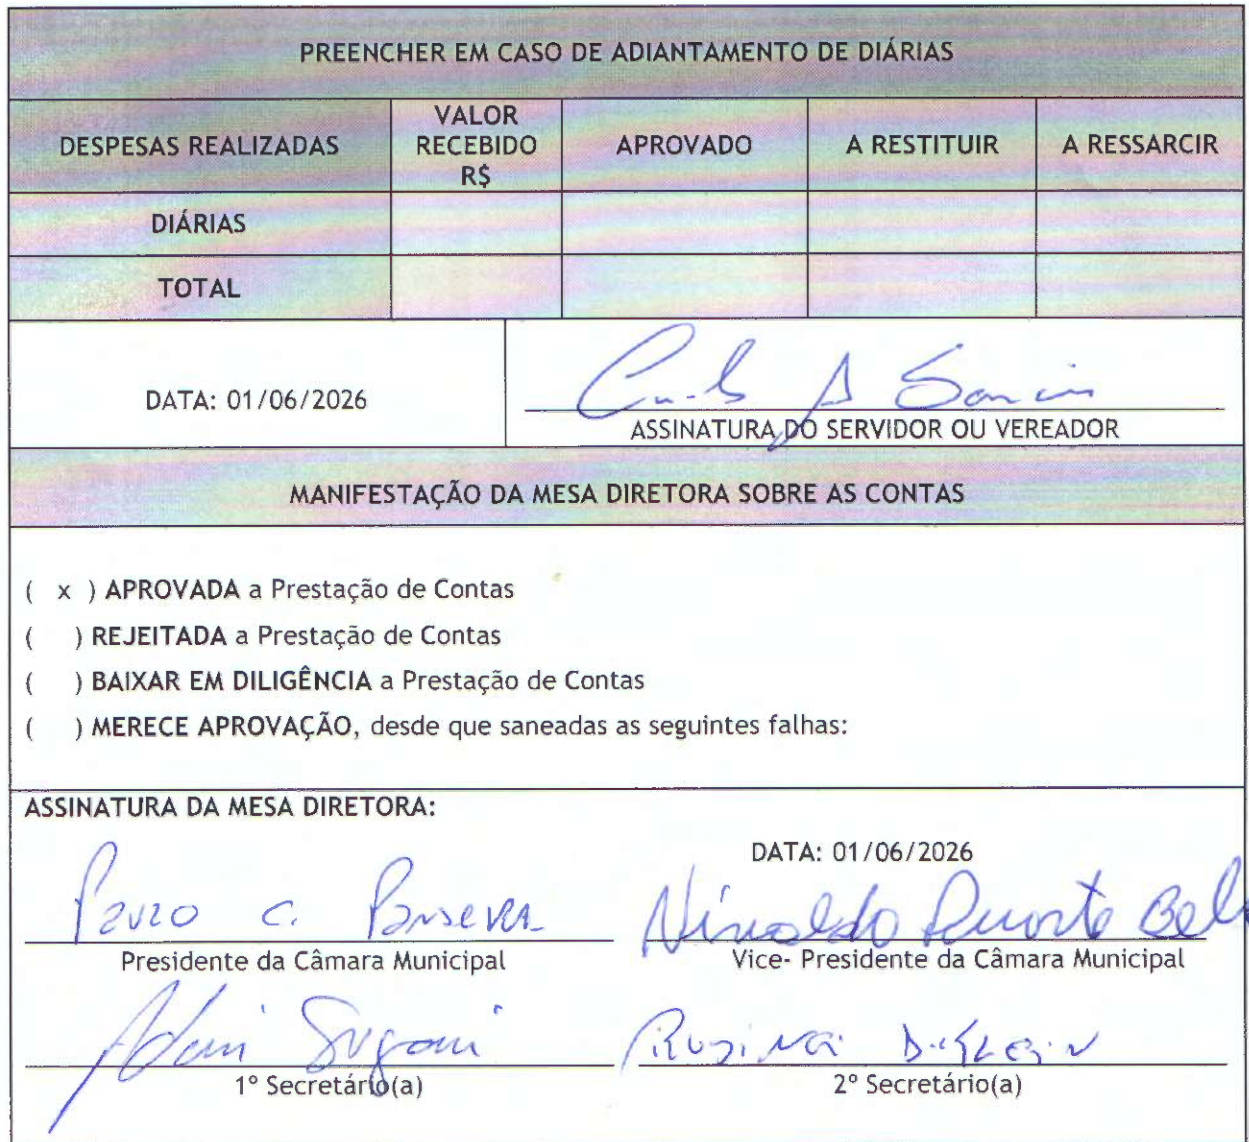 PREENCHER EM CASO DE ADIANTAMENTO DE DIÁRIAS
DESPESAS REALIZADAS VALOR RECEBIDO R$ APROVADO A RESTITUIR A RESSARCIR
DIÁRIAS
TOTAL
DATA: 01/06/2026
ASSINATURA DO SERVIDOR OU VEREADOR
MANIFESTAÇÃO DA MESA DIRETORA SOBRE AS CONTAS
( x ) APROVADA a Prestação de Contas
( ) REJEITADA a Prestação de Contas
( ) BAIXAR EM DILIGÊNCIA a Prestação de Contas
( ) MERECE APROVAÇÃO, desde que saneadas as seguintes falhas:
ASSINATURA DA MESA DIRETORA:
DATA: 01/06/2026
C.
Presidente da Câmara Municipal
Vice- Presidente da Câmara Municipal
1º Secretário(a)
2º Secretário(a)